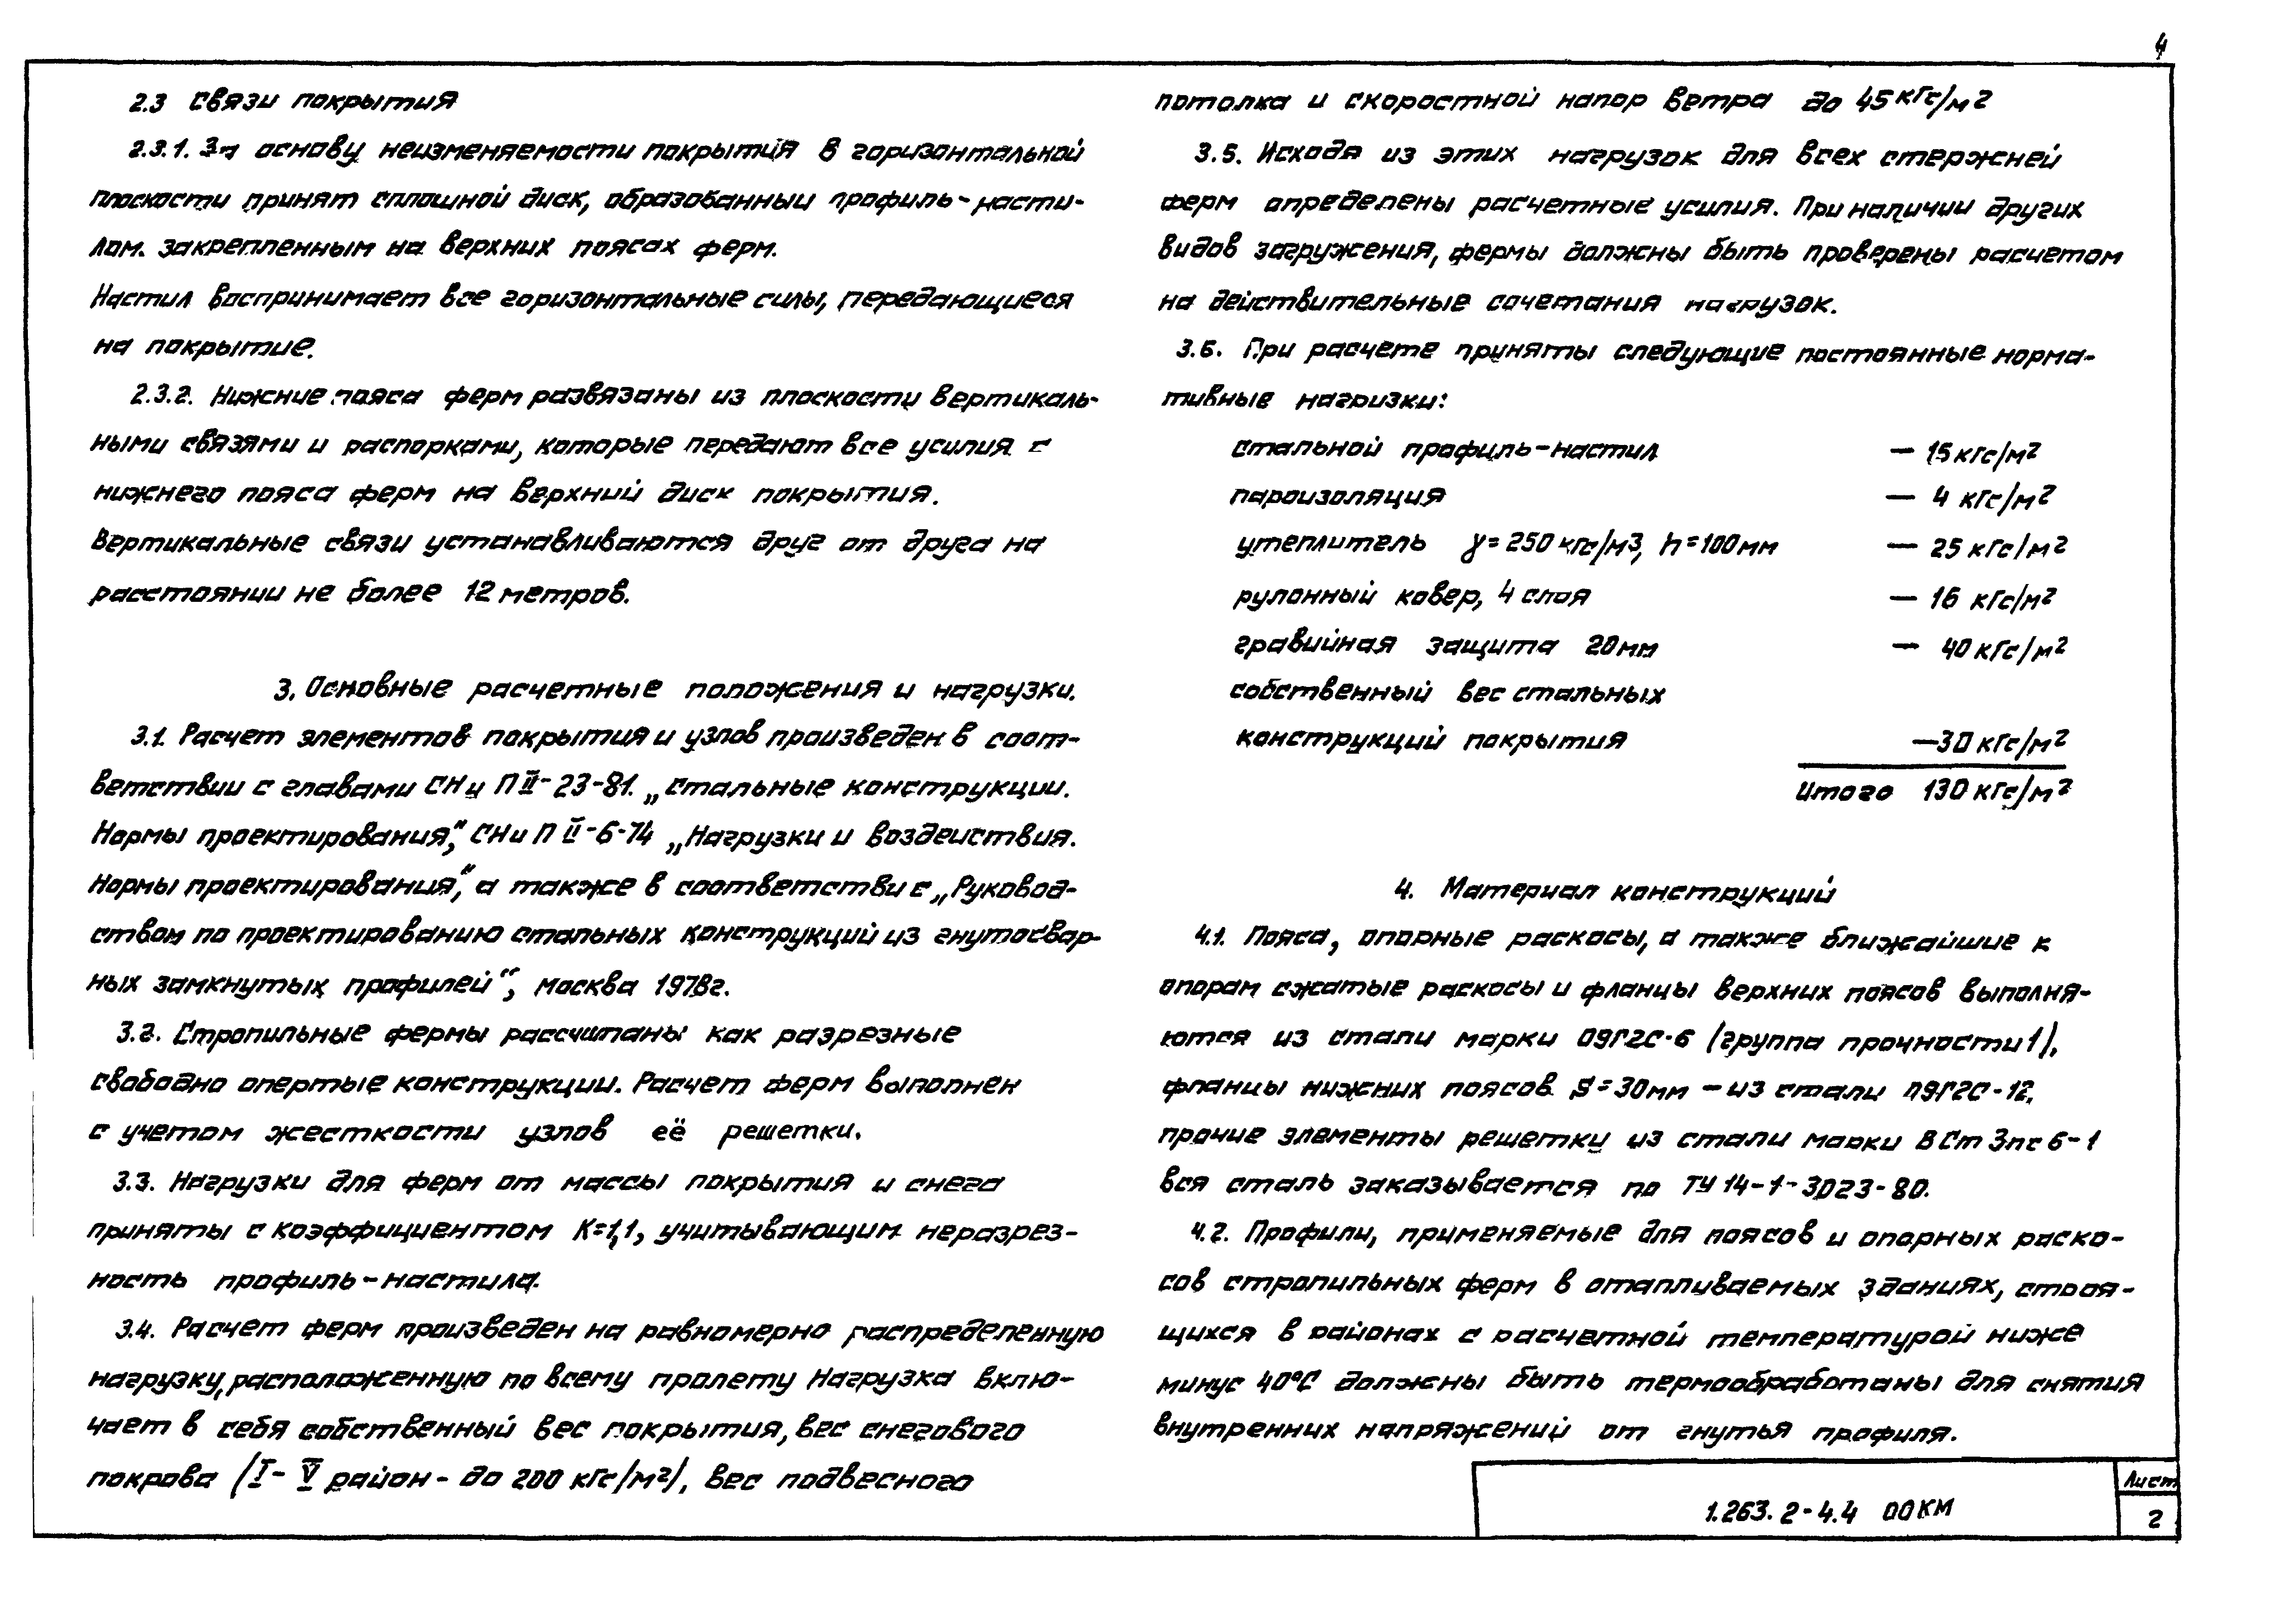 4
2.3 Связи покрытия
2.3.1. За основу неизменяемости покрытия в горизонтальной
плоскости принят сплошной диск, образованный профиль-насти-
лом. закрепленным на верхних поясах ферм.
Настил воспринимает все горизонтальные силы, передающиеся
на покрытие.
2.3.2. Нижние пояса ферм развязаны из плоскости вертикаль-
ными связями и распорками, которые передают все усилия с
нижнего пояса ферм на верхний диск покрытия.
Вертикальные связи устанавливаются друг от друга на
расстоянии не более 12 метров.
3. Основные расчетные положения и нагрузки.
3.1. Расчет элементов покрытия и узлов произведен в соот-
ветствии с главами СНиП II-23-81. „Стальные конструкции.
Нормы проектирования“, СНиП II-6-74 „Нагрузки и воздеиствия.
Нормы проектирования“, а также в соответстви с „Руковод-
ством по проектированию стальных конструкций из гнутосвар-
ных замкнутых профилей“, Москва 1978г.
3.2. Стропильные фермы рассчитаны как разрезные
свободно опертые конструкции. Расчет ферм выполнен
с учетом жесткости узлов её решетки.
3.3. Нагрузки для ферм от массы покрытия и снега
приняты с коэффициентом К=1,1, учитывающим неразрез-
ность профиль-настила.
3.4. Расчет ферм произведен на равномерно распределенную
нагрузку, расположенную по всему пролету Нагрузка вклю-
чает в себя собственный вес покрытия, вес снегового
покрова (I-V район - до 200 кгс/м²), вес подвесного
потолка и скоростной напор ветра до 45 кгс/м²
3.5. Исходя из этих нагрузок для всех стержней
ферм определены расчетные усилия. При наличии других
видов загружения, фермы должны быть проверены расчетом
на действительные сочетания нагрузок.
3.6. При расчете приняты следующие постоянные норма-
тивные нагризки:
стальной профиль-настил — 15 кгс/м²
пароизоляция — 4 кгс/м²
утеплитель γ=250 кгс/м3, h=100мм — 25 кгс/м²
рулонный ковер, 4 слоя — 16 кгс/м²
гравийная защита 20мм — 40 кгс/м²
собственный вес стальных
конструкций покрытия —30 кгс/м²
Итого 130 кгс/м²
4. Материал конструкций
4.1. Пояса, опорные раскосы, а также ближайшие к
опорам сжатые раскосы и фланцы верхних поясов выполня-
ются из стали марки 09Г2С-6 (группа прочности 1),
фланцы нижних поясов S=30мм — из стали 09Г2С-12,
прочие элементы решетки из стали марки ВСт3пс6-1
вся сталь заказывается по ТУ 14-1-3023-80.
4.2. Профили, применяемые для поясов и опорных раско-
сов стропильных ферм в отапливаемых зданиях, строя-
щихся в районах с расчетной температурой ниже
минус 40°С должны быть термообработаны для снятия
внутренних напряжений от гнутья профиля.
1.263.2-4.4 00КМ
Лист
2